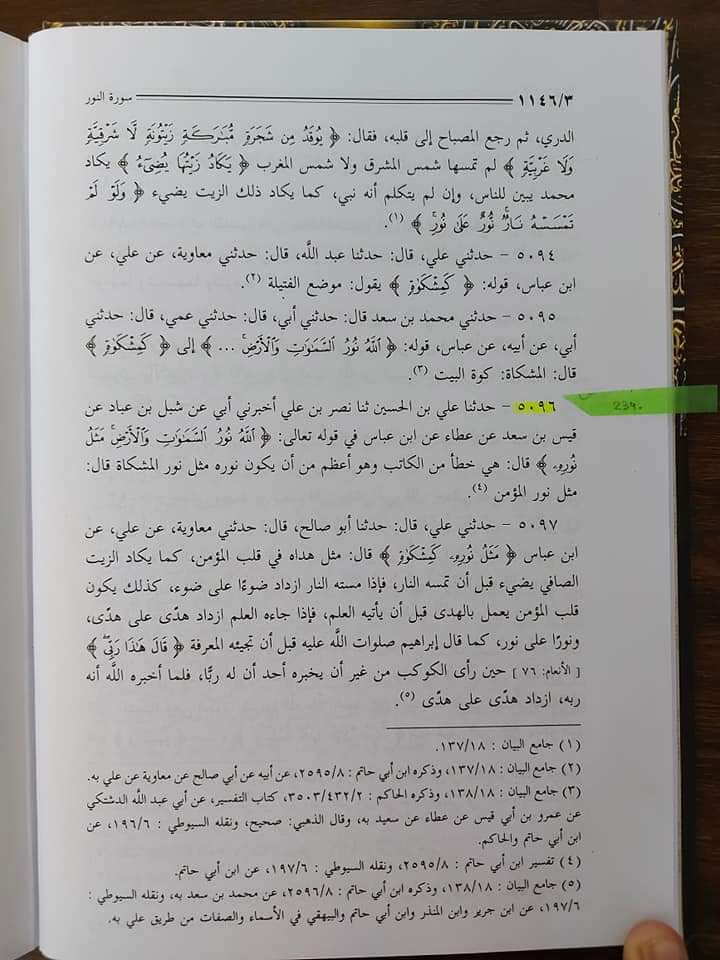 ١١٤٦/٣ سورة النور
الدري، ثم رجع المصباح إلى قلبه، فقال: ﴿ يُوقَدُ مِن شَجَرَةٍ مُّبَارَكَةٍ زَيْتُونَةٍ لَّا شَرْقِيَّةٍ
وَلَا غَرْبِيَّةٍ ﴾ لم تمسها شمس المشرق ولا شمس المغرب ﴿ يَكَادُ زَيْتُهَا يُضِيءُ ﴾ يكاد
محمد يبين للناس، وإن لم يتكلم أنه نبي، كما يكاد ذلك الزيت يضيء ﴿ وَلَوْ لَمْ
تَمْسَسْهُ نَارٌ نُّورٌ عَلَى نُورٍ ﴾ (١).
٥٠٩٤ - حدثني علي، قال: حدثنا عبد الله، قال: حدثني معاوية، عن علي، عن
ابن عباس، قوله: ﴿ كَمِشْكَوٰةٍ ﴾ يقول: موضع الفتيلة (٢).
٥٠٩٥ - حدثني محمد بن سعد قال: حدثني أبي، قال: حدثني عمي، قال: حدثني
أبي، عن أبيه، عن عباس، قوله: ﴿ اللَّهُ نُورُ السَّمَٰوَٰتِ وَالْأَرْضِ ... ﴾ إلى ﴿ كَمِشْكَوٰةٍ ﴾
قال: المشكاة: كوة البيت (٣).
٥٠٩٦ - حدثنا علي بن الحسين ثنا نصر بن علي أخبرني أبي عن شبل بن عباد عن
قيس بن سعد عن عطاء عن ابن عباس في قوله تعالى: ﴿ اللَّهُ نُورُ السَّمَٰوَٰتِ وَالْأَرْضِ مَثَلُ
نُورِهِ ﴾ قال: هي خطأ من الكاتب وهو أعظم من أن يكون نوره مثل نور المشكاة قال:
مثل نور المؤمن (٤).
٥٠٩٧ - حدثني علي، قال: حدثنا أبو صالح، قال: حدثني معاوية، عن علي، عن
ابن عباس ﴿ مَثَلُ نُورِهِ كَمِشْكَوٰةٍ ﴾ قال: مثل هداه في قلب المؤمن، كما يكاد الزيت
الصافي يضيء قبل أن تمسه النار، فإذا مسته النار ازداد ضوءًا على ضوء، كذلك يكون
قلب المؤمن يعمل بالهدى قبل أن يأتيه العلم، فإذا جاءه العلم ازداد هدًى على هدًى،
ونورًا على نور، كما قال إبراهيم صلوات الله عليه قبل أن تجيئه المعرفة ﴿ قَالَ هَٰذَا رَبِّي ﴾
[ الأنعام: ٧٦ ] حين رأى الكوكب من غير أن يخبره أحد أن له ربًّا، فلما أخبره الله أنه
ربه، ازداد هدًى على هدًى (٥).
(١) جامع البيان : ١٣٧/١٨.
(٢) جامع البيان : ١٣٧/١٨، وذكره ابن أبي حاتم : ٢٥٩٥/٨، عن أبيه عن أبي صالح عن معاوية عن علي به.
(٣) جامع البيان : ١٣٨/١٨، وذكره الحاكم : ٣٥٠٣/٤٣٢/٢، كتاب التفسير، عن أبي عبد الله الدشتكي
عن عمرو بن أبي قيس عن عطاء عن سعيد به، وقال الذهبي: صحيح، ونقله السيوطي : ١٩٦/٦، عن
ابن أبي حاتم والحاكم.
(٤) تفسير ابن أبي حاتم : ٢٥٩٥/٨، ونقله السيوطي : ١٩٧/٦، عن ابن أبي حاتم.
(٥) جامع البيان : ١٣٨/١٨، وذكره ابن أبي حاتم : ٢٥٩٦/٨، عن محمد بن سعد به، ونقله السيوطي :
١٩٧/٦، عن ابن جرير وابن المنذر وابن أبي حاتم والبيهقي في الأسماء والصفات من طريق علي به.